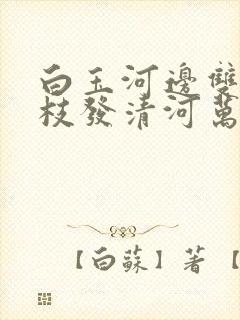 白玉河邊雙
枝發清河萬
【白蘇】著【